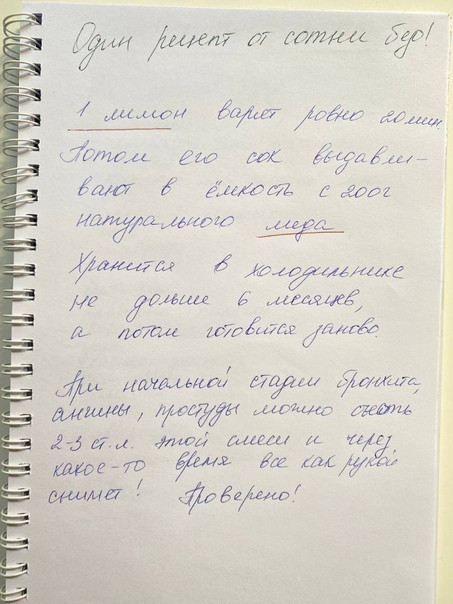 Один рецепт от сотни бед!
1 лимон варят ровно 20 мин.
Потом его сок выдавли-
вают в ёмкость с 200г
натурального меда
Хранится в холодильнике
не дольше 6 месяцев,
а потом готовится заново.
При начальной стадии бронхита,
ангины, простуды можно съесть
2-3 ст.л. этой смеси и через
какое-то время все как рукой
снимет! Проверено!